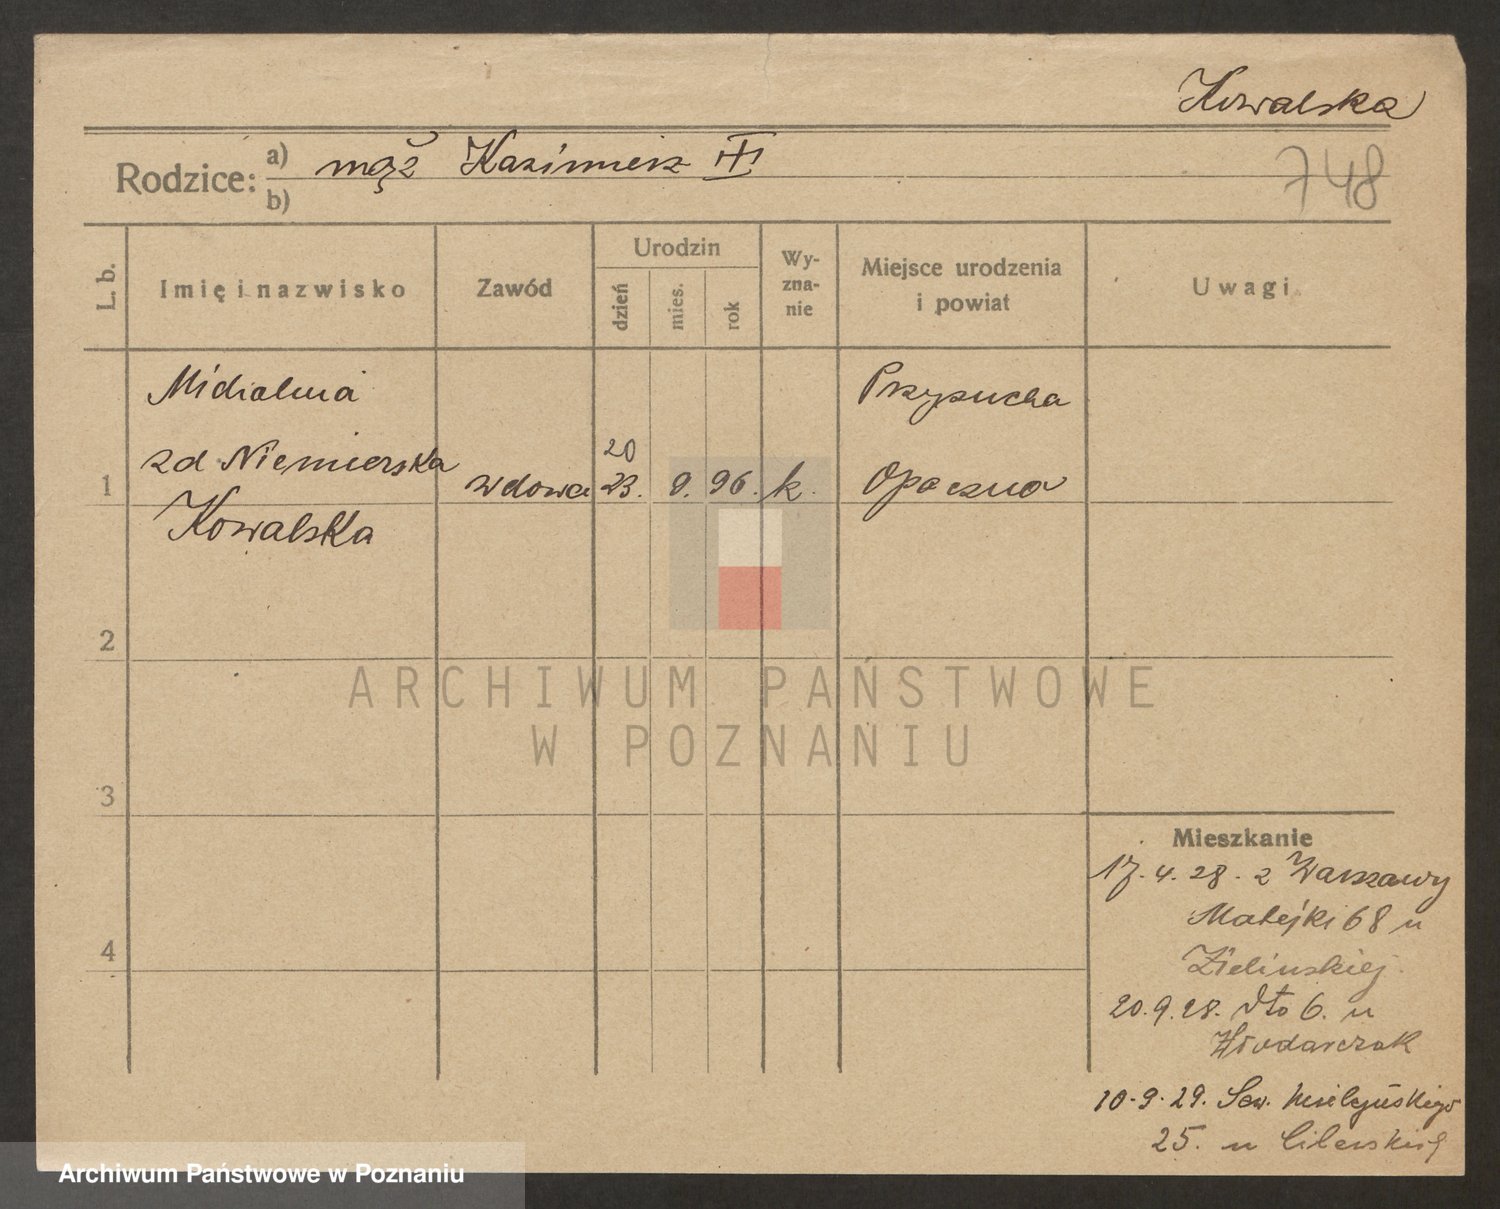 Kowalska
Rodzice: a) mąż Kazimierz III
b)
748
L. b.
Imię i nazwisko
Zawód
Urodzin
dzień
mies.
rok
Wy-
zna-
nie
Miejsce urodzenia
i powiat
Uwagi.
Michalina
Przysucha
zd Niemierska
20
1
wdowa
23. 9. 96. k.
Opoczno
Kowalska
2
ARCHIWUM PAŃSTWOWE
W POZNANIU
3
Mieszkanie
17. 4. 28. z Warszawy
Matejki 68 u
4
Zielinskiej
20.9.28. dto 6. u
Włodarczak
10.9.29. Sew. Mielżyńskiego
25. u
Archiwum Państwowe w Poznaniu